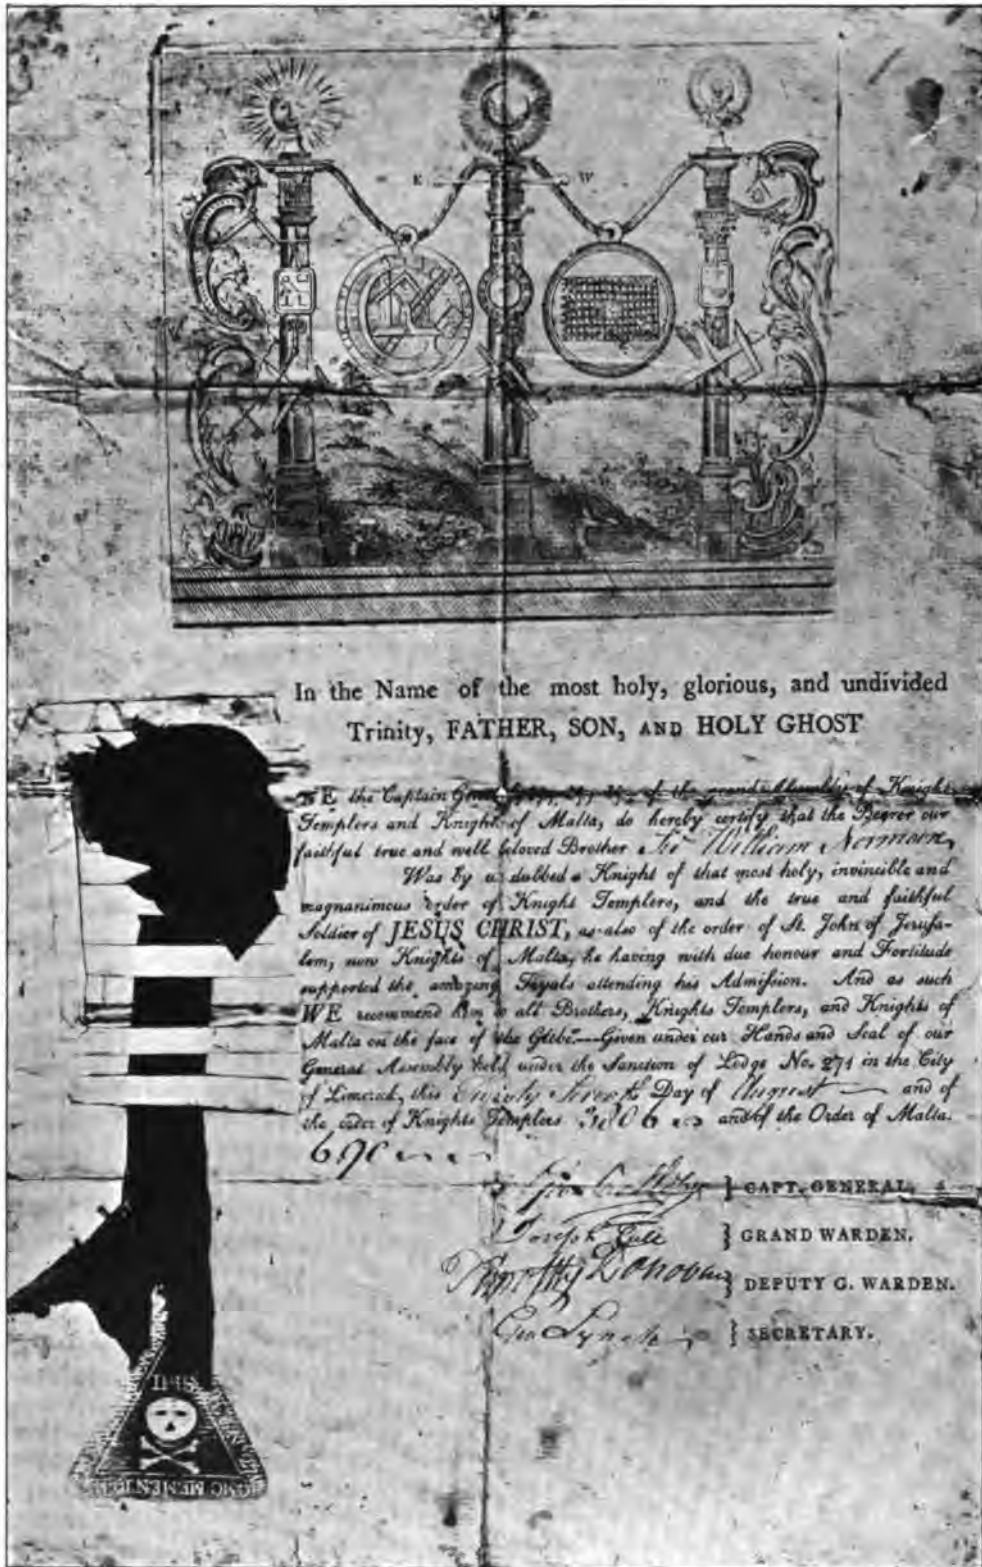 E W
In the Name of the most holy, glorious, and undivided
Trinity, FATHER, SON, AND HOLY GHOST
WE the Captain of the Knights
Templers and Knights of Malta, do hereby certify that the Bearer our
faithful true and well beloved Brother Sir William Normoin
Was by us dubbed a Knight of that most holy, invincible and
magnanimous order of Knight Templers, and the true and faithful
Soldier of JESUS CHRIST, as also of the order of St. John of Jerusa-
lem, now Knights of Malta, he having with due honour and Fortitude
supported the amazing Tryals attending his Admission. And as such
WE recommend him to all Brothers, Knights Templers, and Knights of
Malta on the face of the Globe.—Given under our Hands and Seal of our
General Assembly held under the Sanction of Lodge No. 271 in the City
of Limerick, this Twenty Seventh Day of August — and of
the order of Knights Templers and of the Order of Malta.
CAPT. GENERAL.
Joseph GRAND WARDEN.
Timothy Donovan DEPUTY G. WARDEN.
Geo Lynch SECRETARY.
MEMENTO